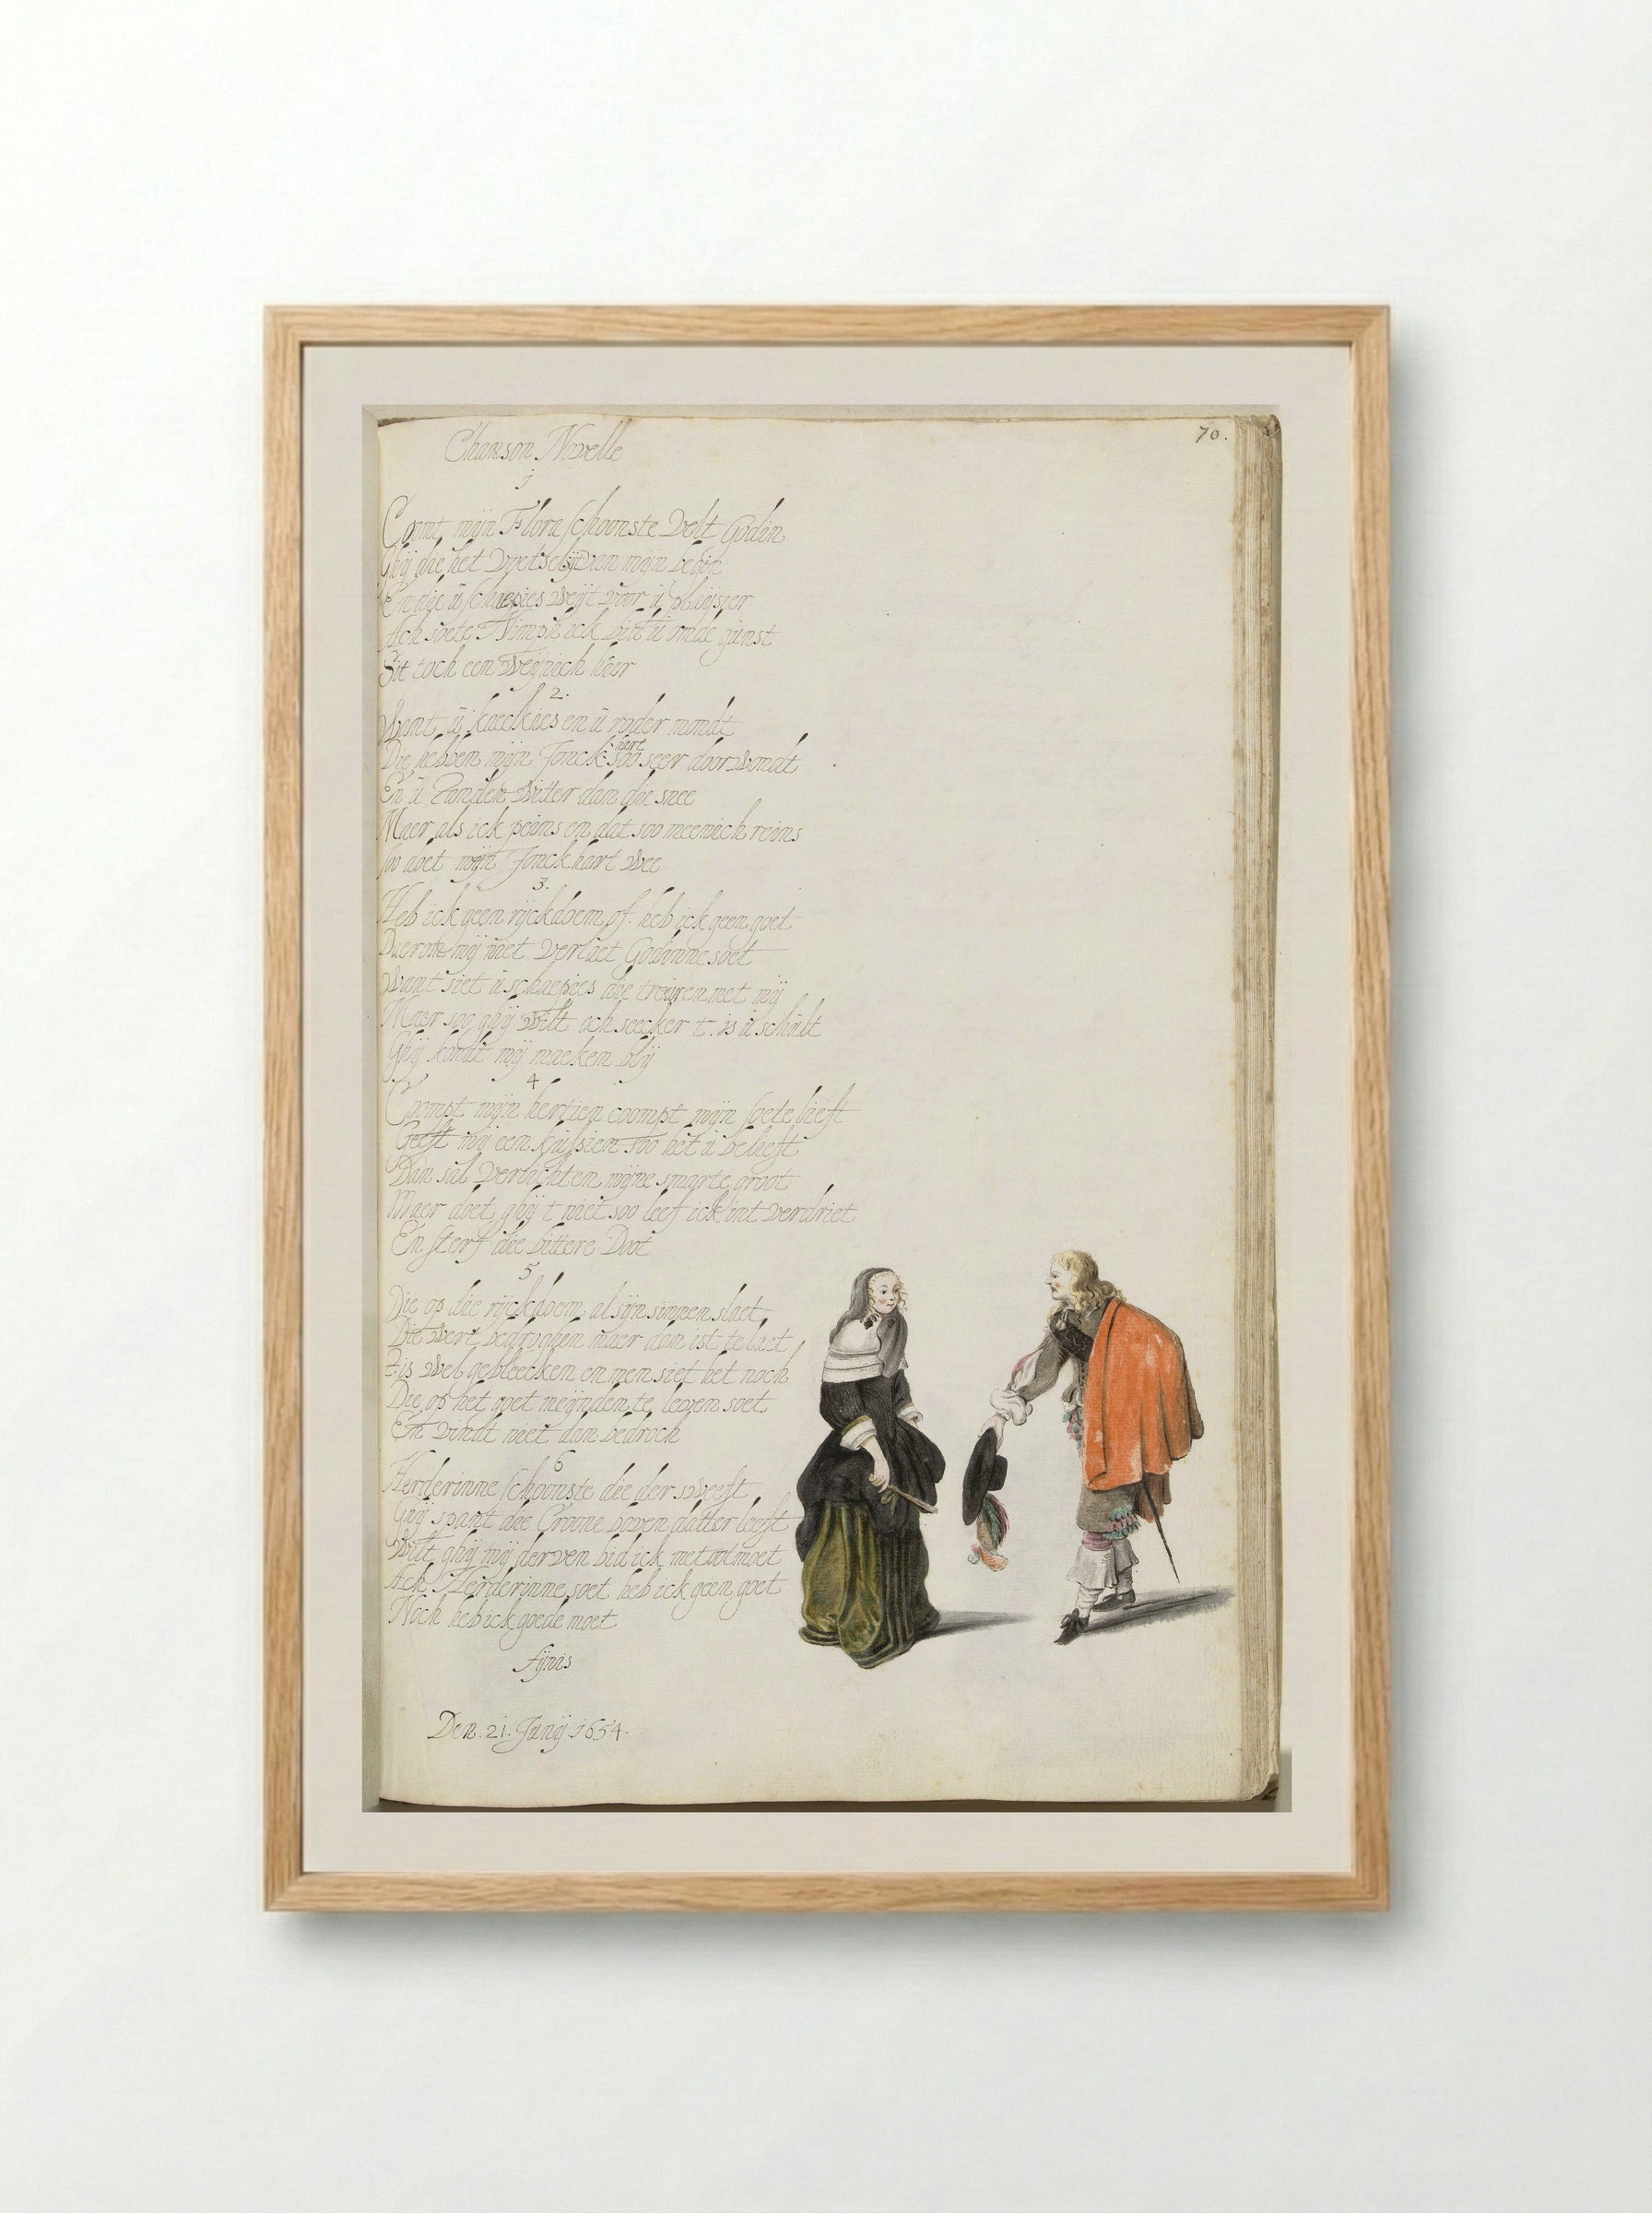 Chanson Novelle
70.
1
Coomt mijn Flora schoonste Velt Godin
Ghij die het
En die ú schaepies Weijt Voor ú plaijsier
Ach soete Nimph ick bid ú om de gúnst
Sit toch een Weijnich hier
2.
Want ú kaeckies en ú roder mondt
Die hebben mijn Jonck hart soo seer doorwondt
En ú Handen Witter dan die snee
Maer als ick peins en dat soo meenich reins
Soo doet mijn Jonck hart Wee
3.
Heb ick geen rijckdoem of heb ick geen goet
Daerom mij niet Verliet Godinne soet
Want siet ú schaepies die treúren met mij
Maer soo ghij Wilt och seecker t. is ú schúlt
Ghij kondt mij maeken blij
4
Coompt mijn hertien coompt mijn soete lieft
Geeft mij een kúsien soo het ú belieft
Dan sal Verlichten mijne smarte groot
Maer doet ghij t niet soo leef ick int Verdriet
En sterf die bittere Doot
5
Die op die rijckdoem al sijn sinnen slaet
Die Wert bedroghen maer dan ist te laet
t.is Wel gebleecken en men siet het noch
Die op het goet meijnden te leven soet
En Vindt niet dan bedroch
6
Herderinne schoonste die der sweeft
Ghij spant die Croone boven datter leeft
Wilt ghij mij derven bid ick met ootmoet
Ach Herderinne soet heb ick geen goet
Noch heb ick goede moet
fijnis
Den. 21. Junij 1654.